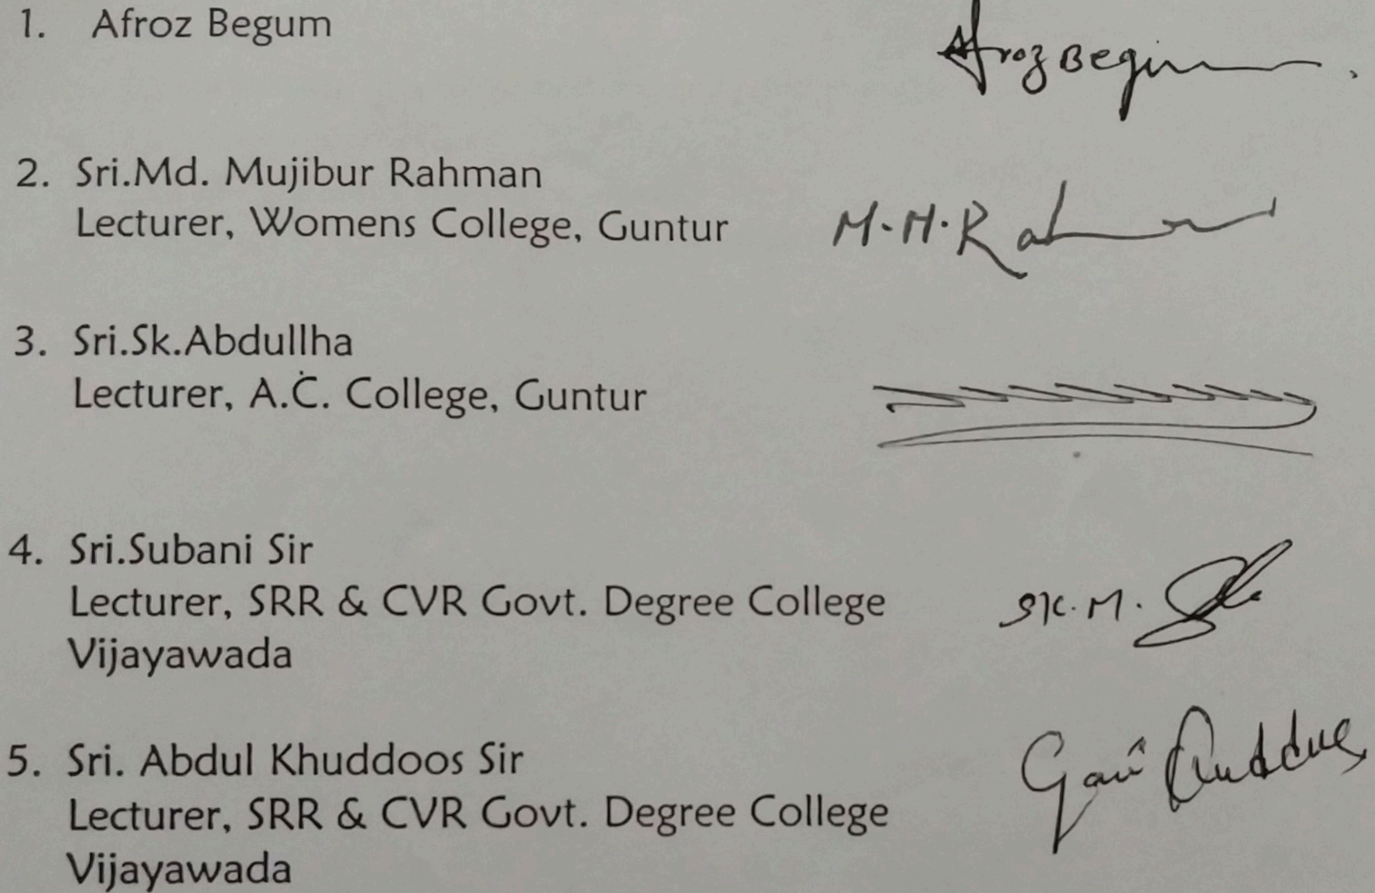 1. Afroz Begum
Afroz Begum
2. Sri.Md. Mujibur Rahman
Lecturer, Womens College, Guntur
M.M.Rahman
3. Sri.Sk.Abdullha
Lecturer, A.C. College, Guntur
4. Sri.Subani Sir
Lecturer, SRR & CVR Govt. Degree College
SK.M.
Vijayawada
5. Sri. Abdul Khuddoos Sir
Quddus
Lecturer, SRR & CVR Govt. Degree College
Vijayawada